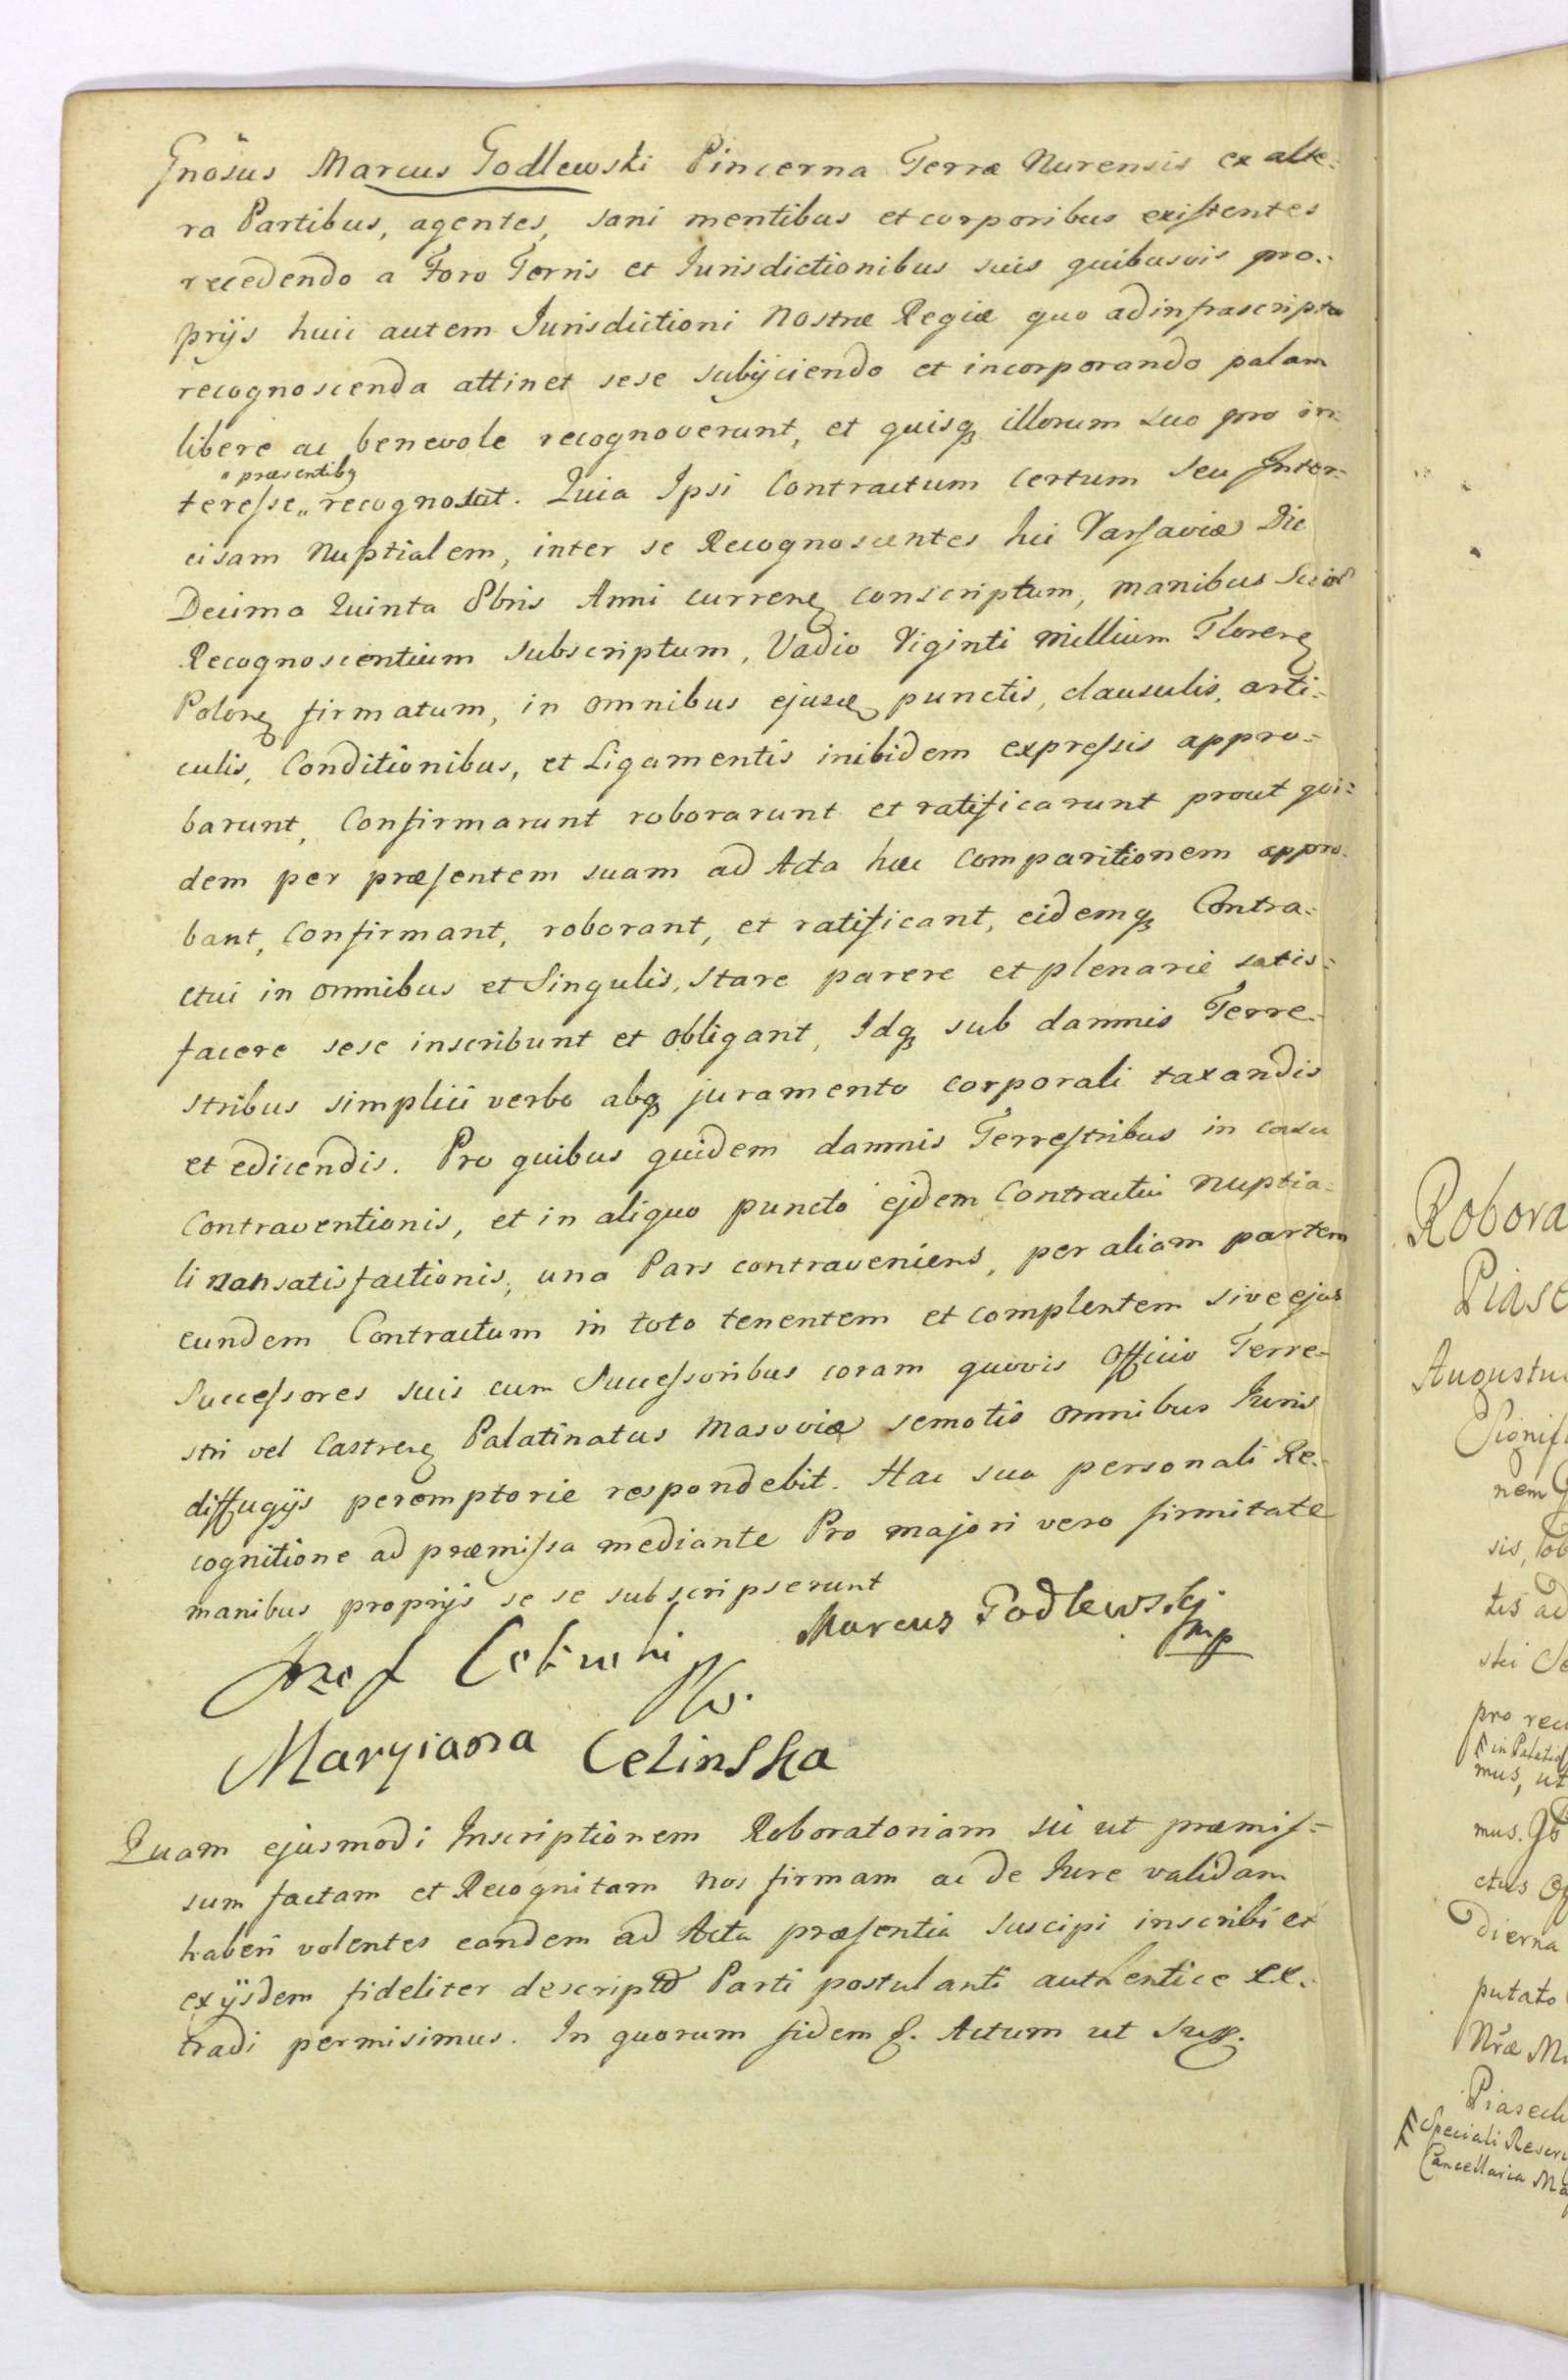 Gnõsus Marcus Godlewski Pincerna Terræ Nurensis ex alte=
ra Partibus, agentes, sani mentibus et corporibus existentes
recedendo a Foro Terris et Jurisdictionibus suis quibusvis pro=
prijs huic autem Jurisdictioni Nostræ Regiæ quo ad infrascripta
recognoscenda attinet sese subijciendo et incorporando palam
libere ac benevole recognoverunt, et quisq illorum suo pro in=
" præsentibq
teresse " recognoscit. Quia Ipsi Contractum certum seu Inter=
cisam Nuptialem, inter se Recognoscentes hic Varsaviæ Die
Decima Quinta 8bris Anni curren conscriptum, manibus Suis
Recognoscentium subscriptum, Vadio Viginti Millium Floren
Polon firmatum, in omnibus ejusd punctis, clausulis, arti=
culis, Conditionibus, et Ligamentis inibidem expressis appro=
barunt, Confirmarunt roborarunt et ratificarunt prout qui=
dem per præsentem suam ad Acta hæc Comparitionem appro=
bant, Confirmant, roborant, et ratificant, eidemq Contra=
ctui in omnibus et Singulis, stare parere et plenarie satis=
facere sese inscribunt et obligant, Idq sub damnis Terre=
stribus simplici verbo absq juramento corporali taxandis
et edicendis. Pro quibus quidem damnis Terrestribus in casu
Contraventionis, et in aliquo puncto ejdem Contractui nuptia=
li nonsatisfactionis, una Pars contraveniens, per aliam partem
eundem Contractum in toto tenentem et complentem sive ejus
Successores suis cum Successoribus coram quovis Officio Terre=
stri vel Castren Palatinatus Masoviæ semotis omnibus Juris
diffugijs peremptorie respondebit. Hac sua personali Re=
cognitione ad præmissa mediante Pro majori vero firmitate
manibus proprijs se se subscripserunt
Marcus Godlewskj
mp
Jozef Celinski
Maryianna Celinska
Quam ejusmodi Inscriptionem Roboratoriam sic ut præmis=
sum factam et Recognitam Nos firmam ac de Jure validam
haberi volentes eandem ad Acta præsentia suscipi inscribi et
ex ijsdem fideliter descriptã Parti postulanti authentice ex=
tradi permisimus. In quorum fidem &. Actum ut Supr.
Robora
Piase
Augustus
Signif
nem
sis, ob
tis ad
ski
pro rec
in Palatio
mus, ut
mus.
ctus
dierna
putato
Nræ
Piaseck
Speciali
Cancellaria